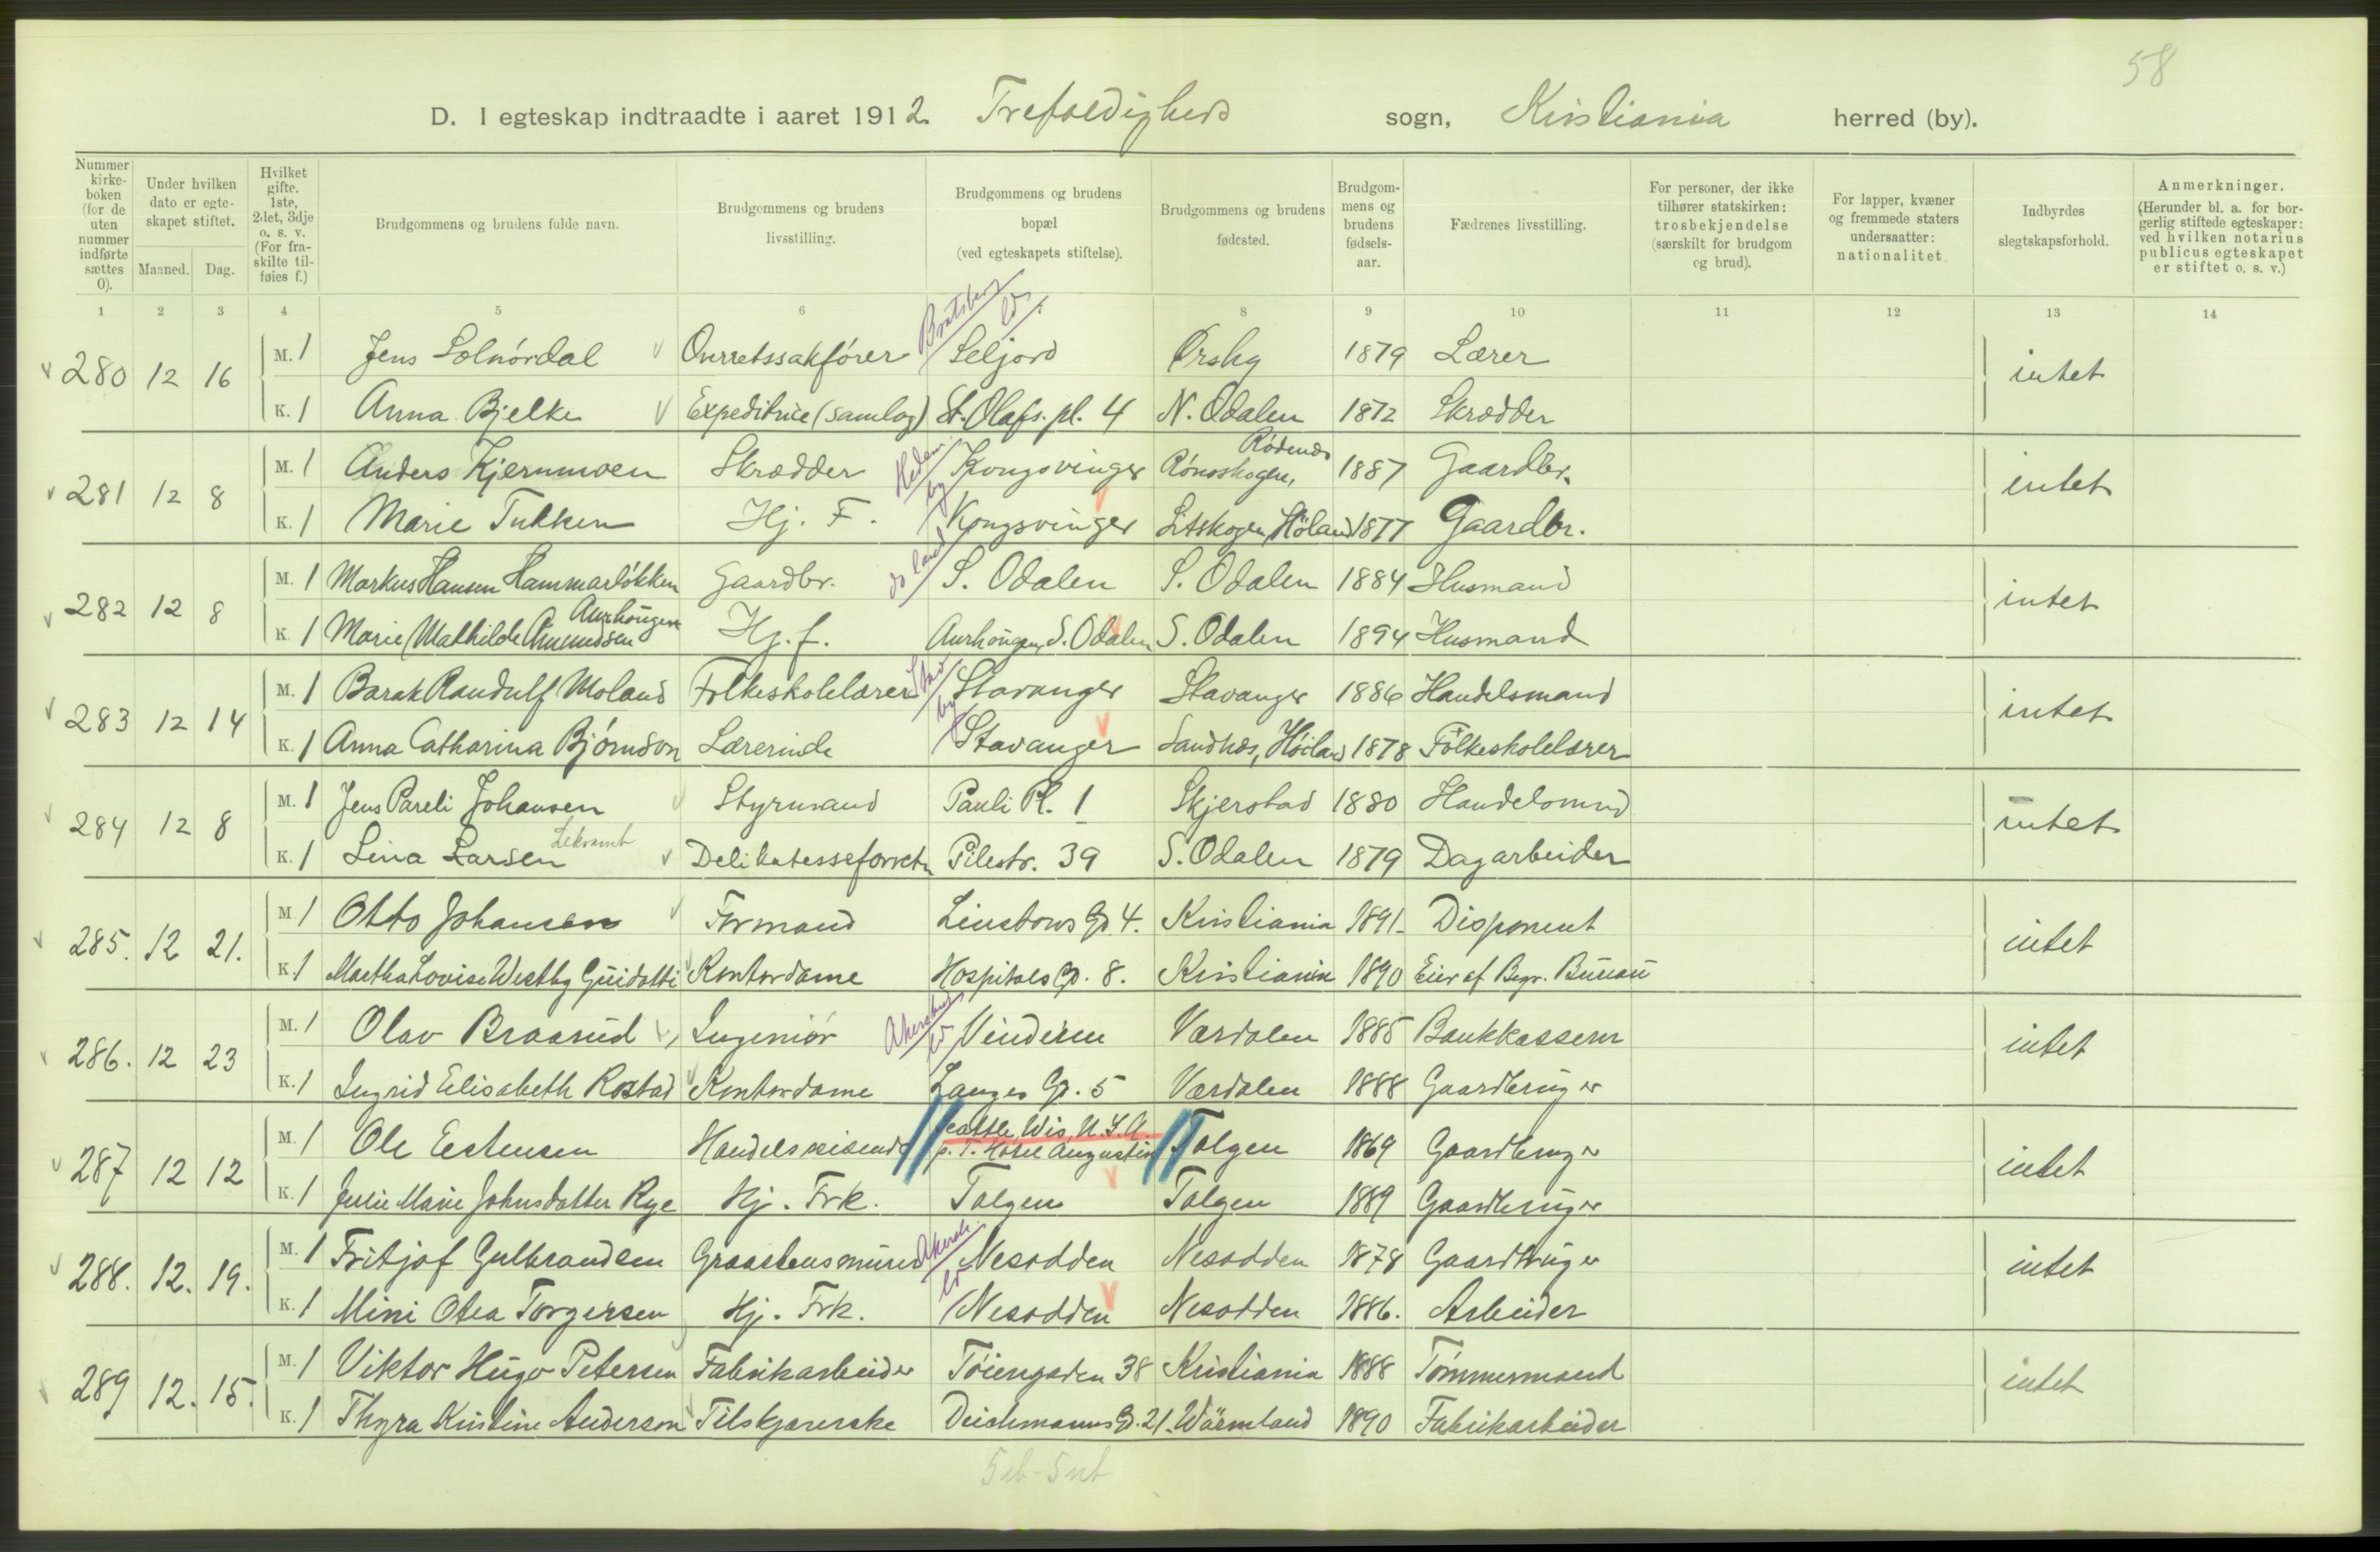 58
D. I egteskap indtraadte i aaret 1912. Trefoldigheds sogn, Kristiania herred (by).
Nummer kirkeboken (for de uten nummer indførte sættes 0).
Under hvilken dato er egteskapet stiftet.
Maaned. Dag.
Hvilket gifte. 1ste, 2det, 3dje o. s. v. (For fraskilte tilføies f.)
Brudgommens og brudens fulde navn.
Brudgommens og brudens livsstilling.
Brudgommens og brudens bopæl (ved egteskapets stiftelse).
Brudgommens og brudens fødested.
Brudgommens og brudens fødselsaar.
Fædrenes livsstilling.
For personer, der ikke tilhører statskirken: trosbekjendelse (særskilt for brudgom og brud).
For lapper, kvæner og fremmede staters undersaatter: nationalitet.
Indbyrdes slegtskapsforhold.
Anmerkninger. (Herunder bl. a. for borgerlig stiftede egteskaper: ved hvilken notarius publicus egteskapet er stiftet o. s. v.)
1 2 3 4 5 6 8 9 10 11 12 13 14
Bratsberg
280 12 16 M. 1 Jens Solnórdal Overretssakfører Seljord Ørsky 1879 Lærer intet
K. 1 Anna Bjelke Expeditrice (samlag) St. Olafs. pl. 4 N. Odalen 1872 Skrædder
Hedem. by
281 12 8 M. 1 Anders Kjernmoen Skrædder Kongsvinger Rønsskogen, Rødenæs 1887 Gaardbr. intet
K. 1 Marie Tukken Hj. F. Kongsvinger Setskogen, Höland 1877 Gaardbr.
do land
282 12 8 M. 1 Markus Hansen Hammarløkken Gaardbr. S. Odalen S. Odalen 1884 Husmand intet
K. 1 Marie Mathilde Amundsen Aurhøugen Hj. f. Aurhøugen, S. Odalen S. Odalen 1894 Husmand
Stav. by
283 12 14 M. 1 Barak Randulf Moland Folkeskolelærer Stavanger Stavanger 1886 Handelsmand intet
K. 1 Anna Catharina Bjørnson Lærerinde Stavanger Sandnes, Høiland 1878 Folkeskolelærer
284 12 8 M. 1 Jens Pareli Johansen Styrmand Pauli Pl. 1 Skjerstad 1880 Handelsmnd intet
K. 1 Lina Larsen Delikatesseforretn Pilestr. 39 S. Odalen 1879 Dagarbeider
285. 12 21. M. 1 Otto Johansen Formand Linstows Gd. 4. Kristiania 1891. Disponent intet
K. 1 Martha Lovise Westby Guidotti Kontordame Hospitals Gd. 8. Kristiania 1890 Eier af Begr. Bureau
Akershus
286. 12 23 M. 1 Olav Braarud Ingeniør Vinderen Værdalen 1885 Bankkasserer intet
K. 1 Ingrid Elisabeth Rostad Kontordame Langes Gd. 5 Værdalen 1888 Gaardbruger
287 12 12 M. 1 Ole Estensen Handelsreisende Seattle, Wis, U.S.A. p. T. Hotel Augustin Tolgen 1869 Gaardbruger intet
K. 1 Julie Marie Johnsdatter Rye Hj. Frk. Tolgen Tolgen 1889 Gaardbruger
Akersh.
288. 12. 19. M. 1 Fritjof Gulbrandsen Graastensmurer Nesodden Nesodden 1878 Gaardbruger intet
K. 1 Mini Otea Torgersen Hj. Frk. Nesodden Nesodden 1886. Arbeider
289 12. 15. M. 1 Viktor Hugo Petersen Fabrikarbeider Tøiengaden 38 Kristiania 1888 Tømmermand intet
K. 1 Thyra Kristine Anderson Tilskjærerske Deichmanns Gd. 21. Wärmland 1890 Fabrikarbeider